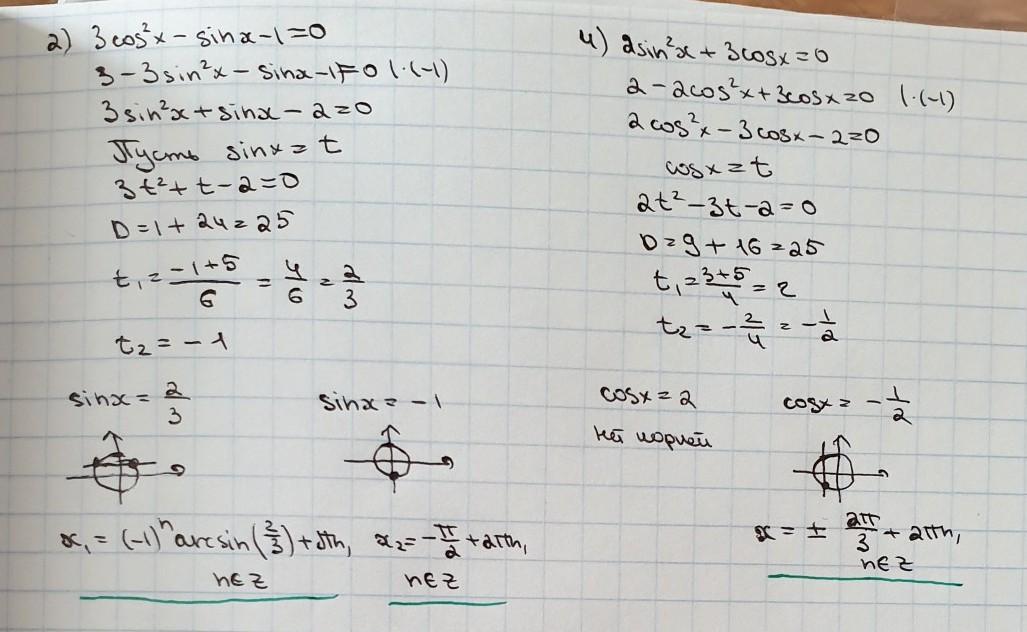 2) 3cos²x - sinx - 1 = 0
3 - 3sin²x - sinx - 1 = 0 | ·(-1)
3sin²x + sinx - 2 = 0
Пусть sinx = t
3t² + t - 2 = 0
D = 1 + 24 = 25
t₁ = (-1+5)/6 = 4/6 = 2/3
t₂ = -1
sinx = 2/3
sinx = -1
x₁ = (-1)ⁿ arcsin(2/3) + πn,
n∈Z
x₂ = -π/2 + 2πn,
n∈Z
4) 2sin²x + 3cosx = 0
2 - 2cos²x + 3cosx = 0 | ·(-1)
2cos²x - 3cosx - 2 = 0
cosx = t
2t² - 3t - 2 = 0
D = 9 + 16 = 25
t₁ = (3+5)/4 = 2
t₂ = -2/4 = -1/2
cosx = 2
нет корней
cosx = -1/2
x = ± 2π/3 + 2πn,
n∈Z